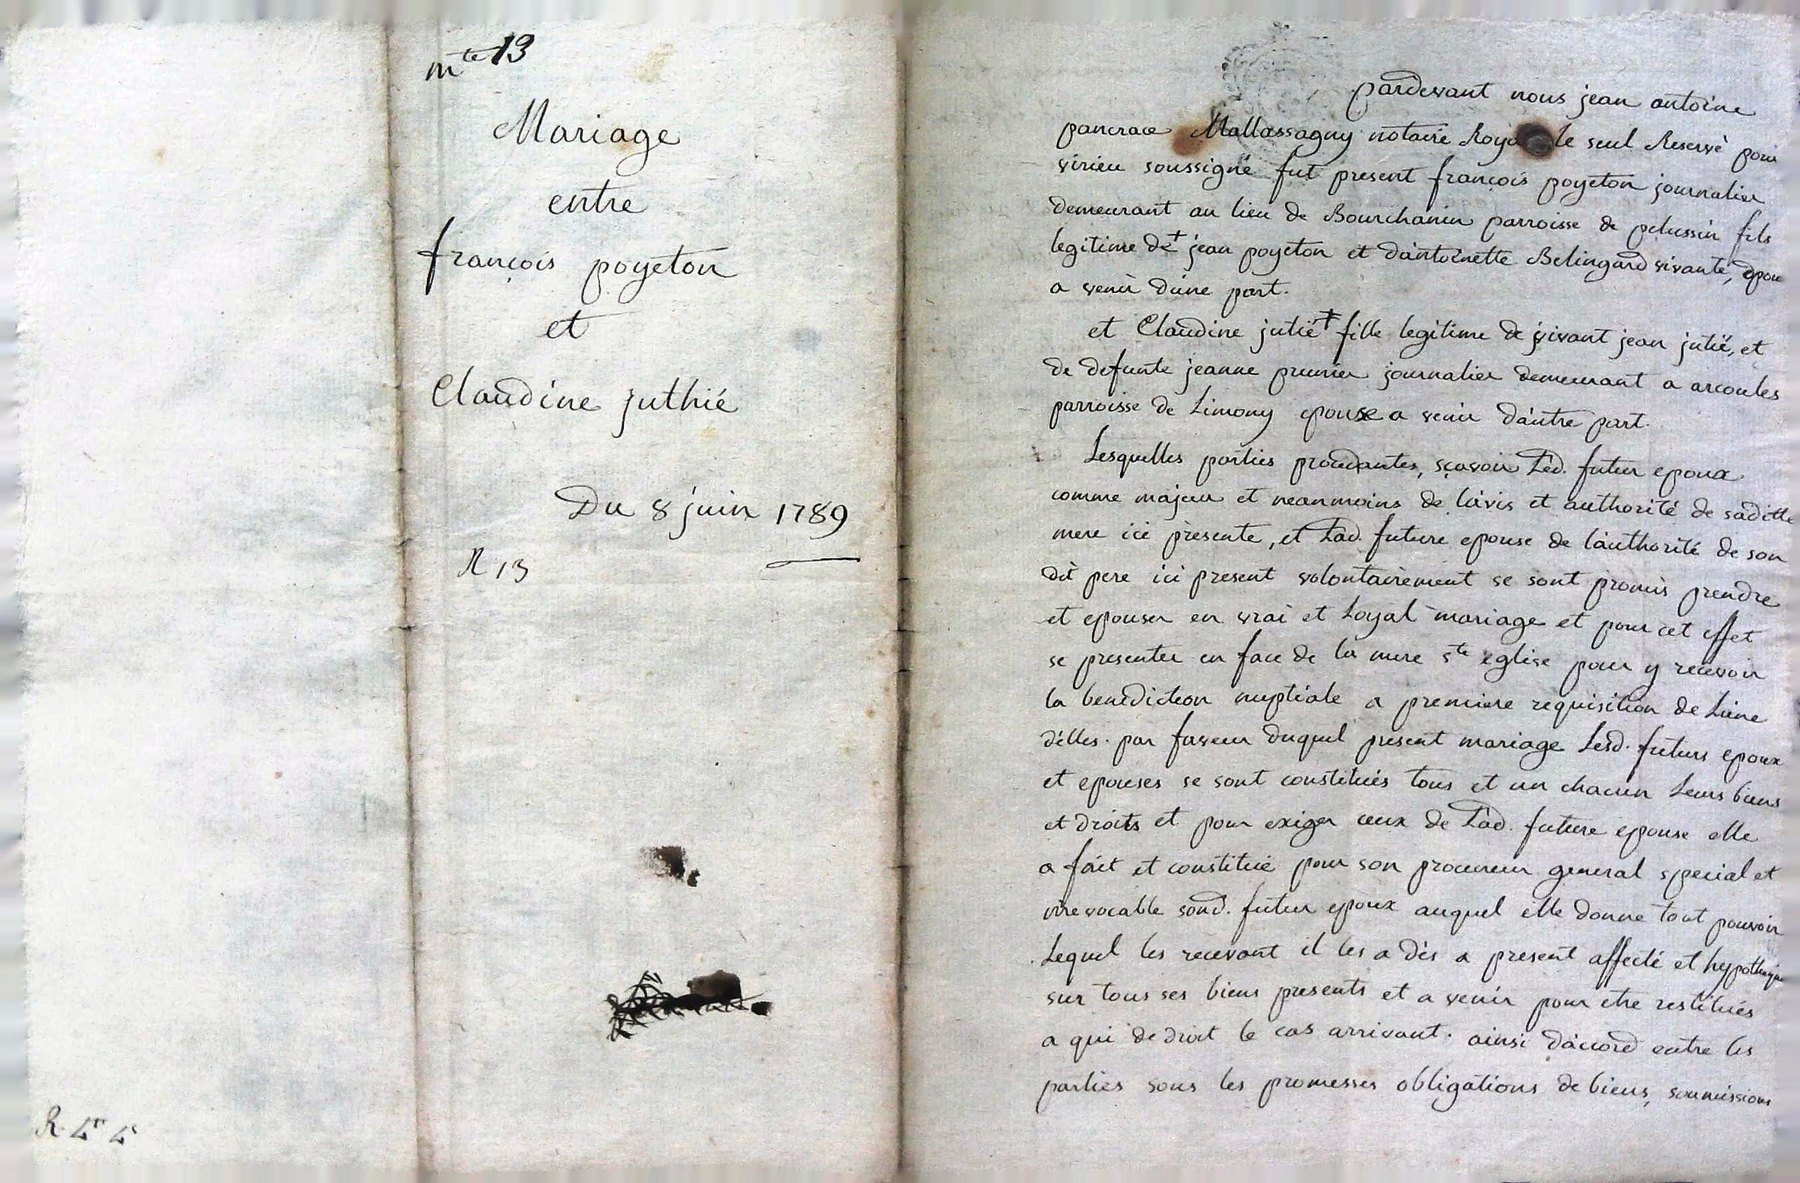 mte 13
Mariage
entre
françois poyeton
et
Claudine juthié
Du 8 juin 1789
R 13
R. 4
pardevant nous jean antoine
pancrace Mallassagny notaire Royal le seul Reservé pour
virieu soussigné fut present françois poyeton journalier
demeurant au lieu de Bourchanin parroisse de pelussin fils
legitime de jean poyeton et d'antoinette Belingard vivante, epoux
a venir d'une part.
et Claudine jutié fille legitime de vivant jean jutié, et
de defunte jeanne prunier journalier demeurant a arcoules
parroisse de Limony epouse a venir d'autre part.
Lesquelles parties procedantes, sçavoir Led. futur epoux
comme majeur et neanmoins de l'avis et authorité de saditte
mere ici presente, et Lad. future epouse de l'authorité de son
dit pere ici present volontairement se sont promis prendre
et epouser en vrai et Loyal mariage et pour cet effet
se presenter en face de la mere ste eglise pour y recevoir
la benediction nuptiale a premiere requisition de L'une
d'elles. par faveur duquel present mariage Lesd. futurs epoux
et epouses se sont constitués tous et un chacun Leurs biens
et droits et pour exiger ceux de Lad. future epouse elle
a fait et constitué pour son procureur general special et
irrevocable sond. futur epoux auquel elle donne tout pouvoir
Lequel les recevant il les a dès a present affecté et hypothequé
sur tous ses biens presents et a venir pour etre restitués
a qui de droit le cas arrivant. ainsi d'accord entre les
parties sous les promesses obligations de biens, soumissions